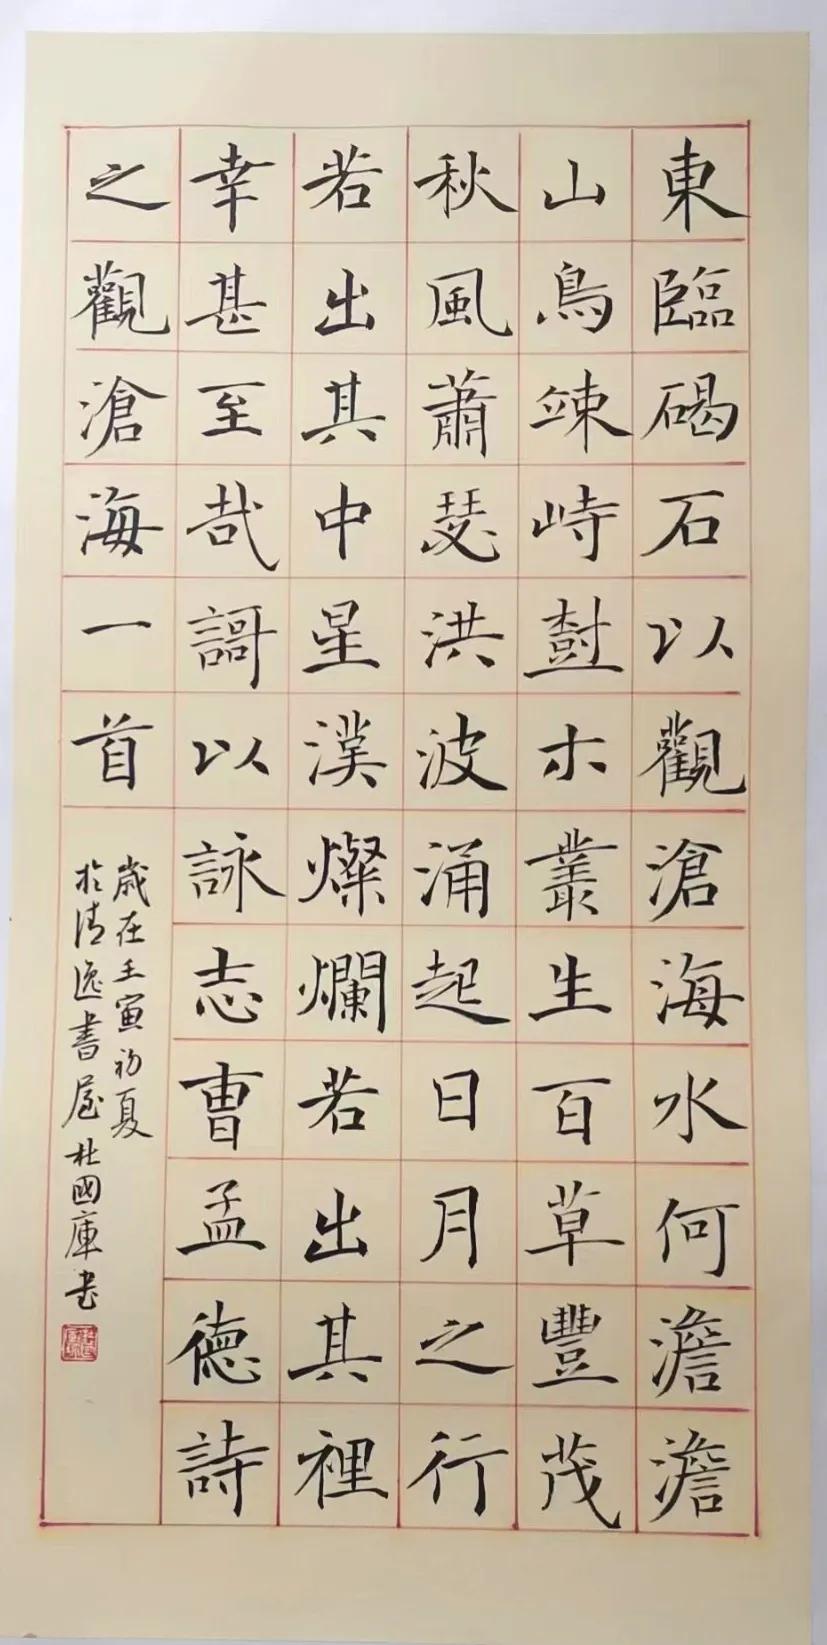 東臨碣石以觀滄海水何澹澹
山鳥竦峙樹木叢生百草豐茂
秋風蕭瑟洪波涌起日月之行
若出其中星漢燦爛若出其裡
幸甚至哉謌以詠志曹孟德詩
之觀滄海一首
歲在壬寅初夏
於清逸書屋杜國庫书